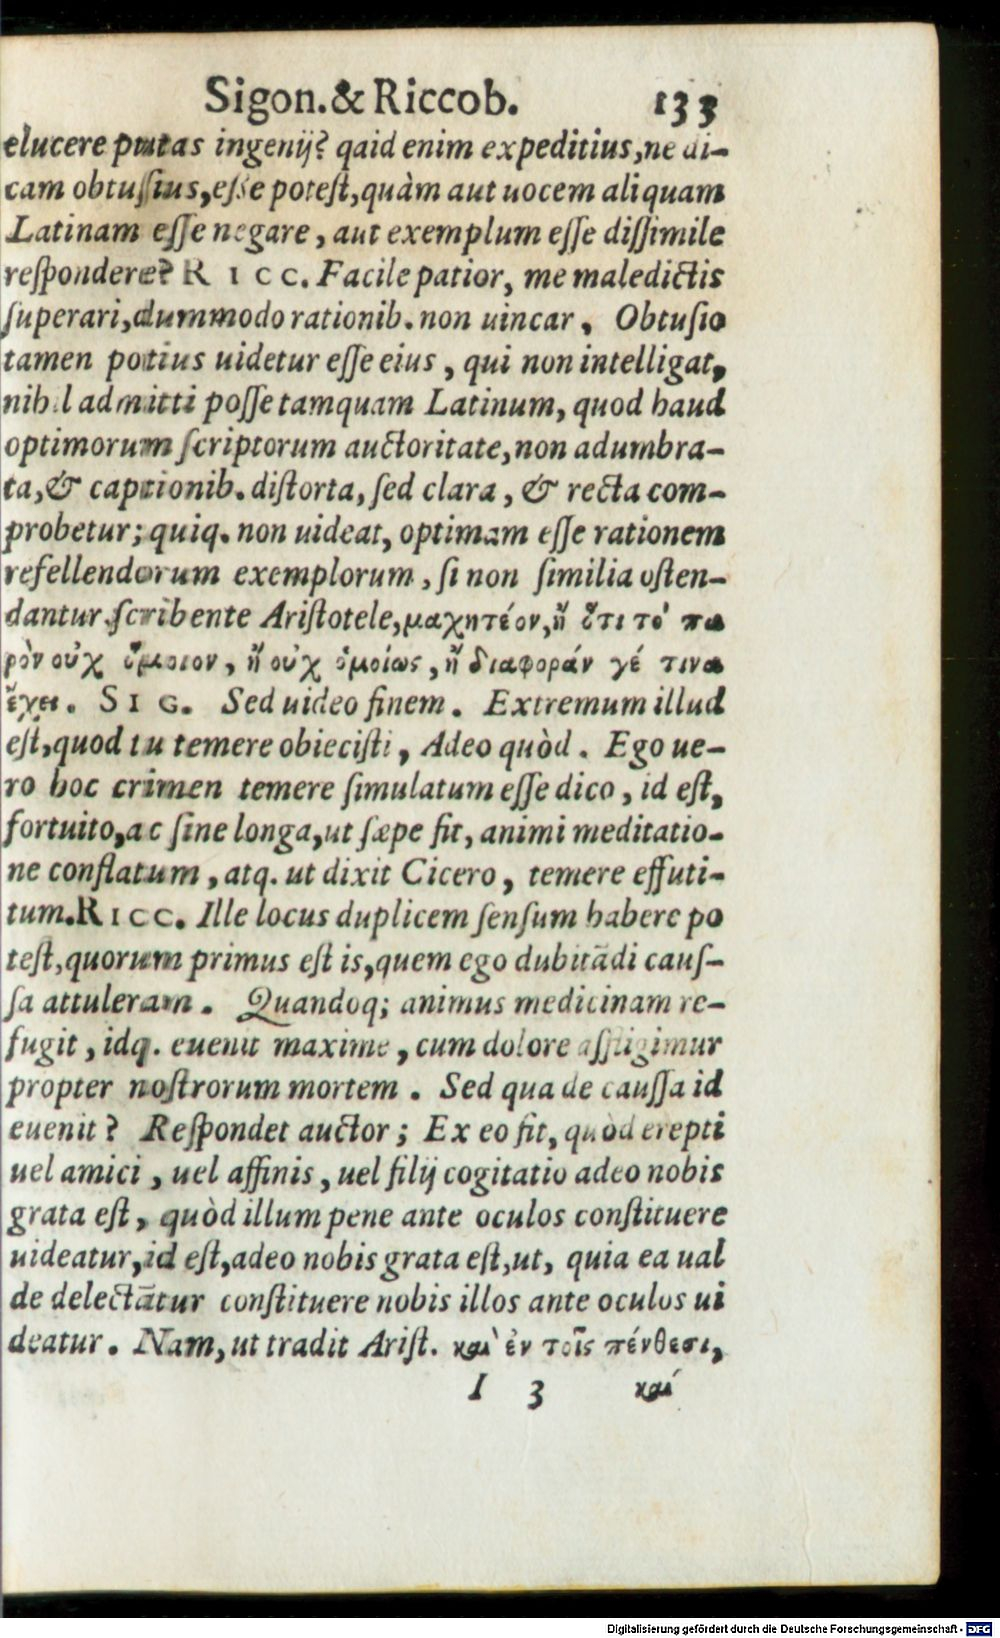 Sigon. & Riccob. 133
elucere putas ingenij? qaid enim expeditius, ne di-
cam obtusius, esse potest, quàm aut uocem aliquam
Latinam esse negare, aut exemplum esse dissimile
respondere? RICC. Facile patior, me maledictis
superari, dummodo rationib. non uincar. Obtusio
tamen potius uidetur esse eius, qui non intelligat,
nihil admitti posse tamquam Latinum, quod haud
optimorum scriptorum auctoritate, non adumbra-
ta, & captionib. distorta, sed clara, & recta com-
probetur; quiq. non uideat, optimam esse rationem
refellendorum exemplorum, si non similia osten-
dantur, scribente Aristotele, μαχητέον, ἢ ὅτι τὸ πα
ρὸν οὐχ ὅμοιον, ἢ οὐχ ὁμοίως, ἢ διαφοράν γέ τινα
ἔχει. SIG. Sed uideo finem. Extremum illud
est, quod tu temere obiecisti, Adeo quòd. Ego ue-
ro hoc crimen temere simulatum esse dico, id est,
fortuito, ac sine longa, ut sæpe fit, animi meditatio-
ne conflatum, atq. ut dixit Cicero, temere effuti-
tum. RICC. Ille locus duplicem sensum habere po
test, quorum primus est is, quem ego dubitādi caus-
sa attuleram. Quandoq; animus medicinam re-
fugit, idq. euenit maxime, cum dolore affligimur
propter nostrorum mortem. Sed qua de caussa id
euenit? Respondet auctor; Ex eo fit, quòd erepti
uel amici, uel affinis, uel filij cogitatio adeo nobis
grata est, quòd illum pene ante oculos constituere
uideatur, id est, adeo nobis grata est, ut, quia ea ual
de delectātur constituere nobis illos ante oculos ui
deatur. Nam, ut tradit Arist. καὶ ἐν τοῖς πένθεσι,
I 3 καί
Digitalisierung gefördert durch die Deutsche Forschungsgemeinschaft - DFG